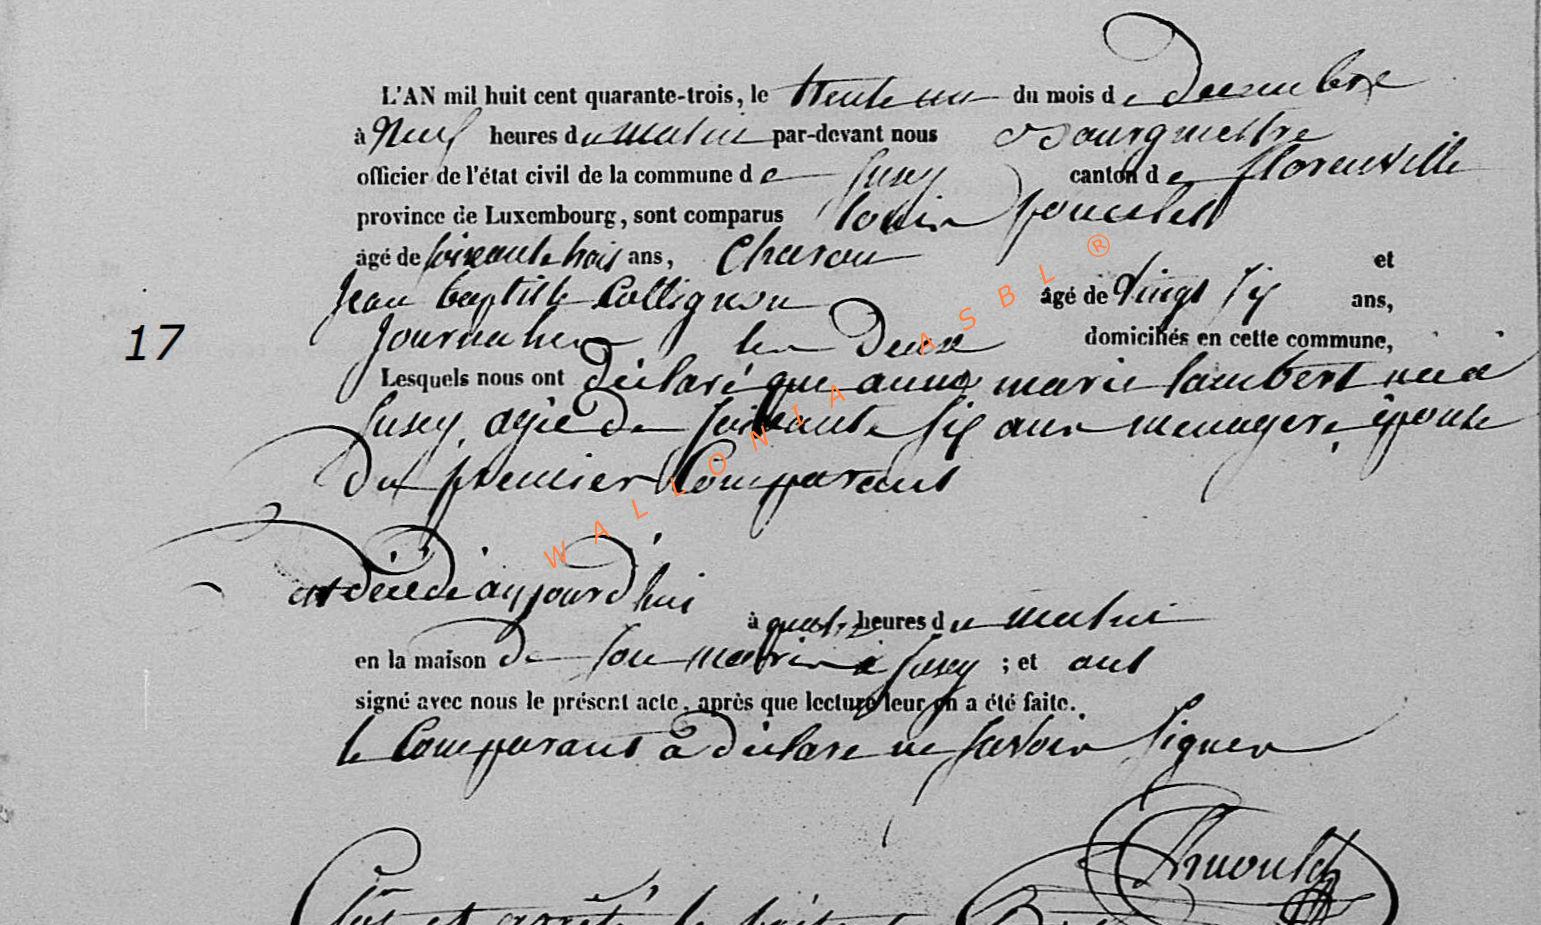 L'AN mil huit cent quarante-trois, le trente un du mois de decembre
à Neuf heures du matin par-devant nous Bourgmestre
officier de l'état civil de la commune de Jusey canton de florenville
province de Luxembourg, sont comparus Louis poncelet
âgé de soixante trois ans, charon et
Jean baptiste Collignon âgé de vingt six ans,
17
Journalier les Deux domiciliés en cette commune,
Lesquels nous ont déclaré que anne marie lambert née à
Jusey, agée de soixante six ans menagere, épouse
du premier Comparant
est décédé aujourd'hui
à quatre heures du matin
en la maison de son mari à Jusey ; et ont
signé avec nous le présent acte, après que lecture leur en a été faite.
le Comparant à déclare ne savoir signer
Arnould
et arrêté le
WALLONIA ASBL ®